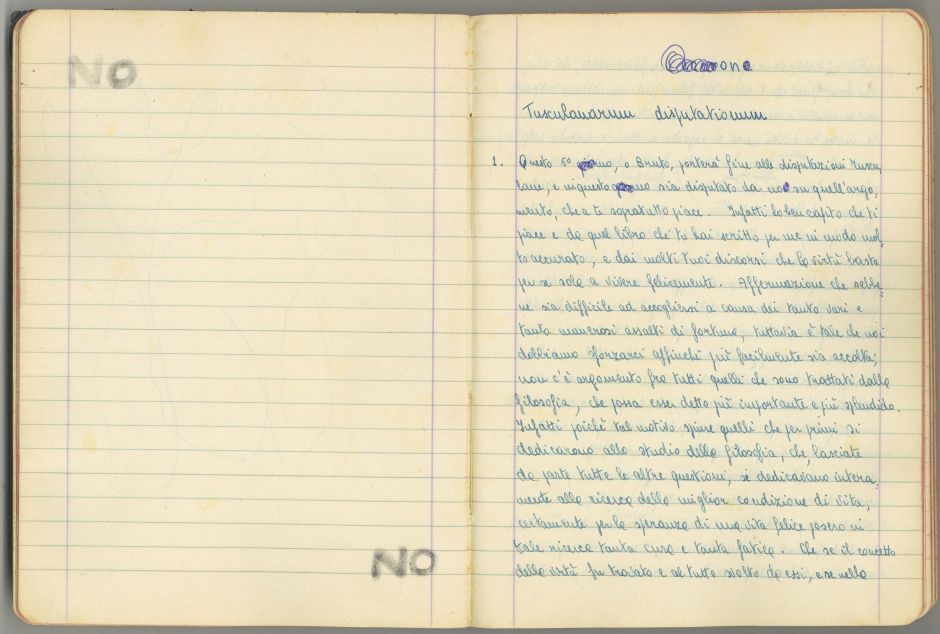 NO
NO
one
Tusculanarum disputationum
1. Questo 5º giorno, o Bruto, porterà fine alle disputazioni Tuscu=
lane, e in questo giorno sia disputato da noi su quell'argo,
mento, che a te sopratutto piace. Infatti ho ben capito che ti
piace e da quel libro che tu hai scritto per me in modo mol=
to accurato, e dai molti tuoi discorsi che la virtù basta
per se sola a vivere felicemente. Affermazione che sebbe=
ne sia difficile ad accogliersi a causa dei tanto vari e
tanto numerosi assalti di fortuna, tuttavia è tale che noi
dobbiamo sforzarci affinché più facilmente sia accolta;
non c'è argomento fra tutti quelli che sono trattati dalla
filosofia, che possa esser detto più importante e più splendido.
Infatti poichè tal motivo spinse quelli che per primi si
dedicarono allo studio della filosofia, che, lasciate
da parte tutte le altre questioni, si dedicavano intera=
mente alla ricerca della miglior condizione di vita,
certamente per la speranza di una vita felice posero in
tale ricerca tanta cura e tanta fatica. Che se il concetto
della virtù fu trovato e al tutto svolto da essi, e se nella